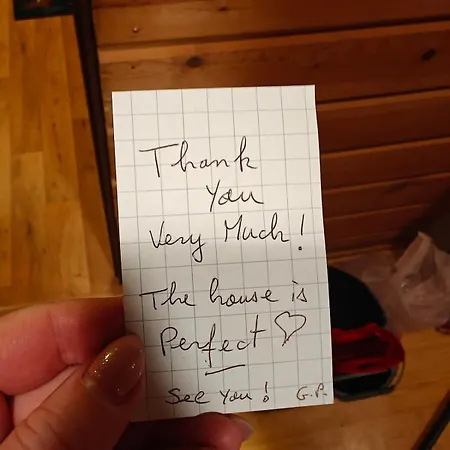 Thank
You
Very Much!
The house is
Perfect ♡
See You! G.P.